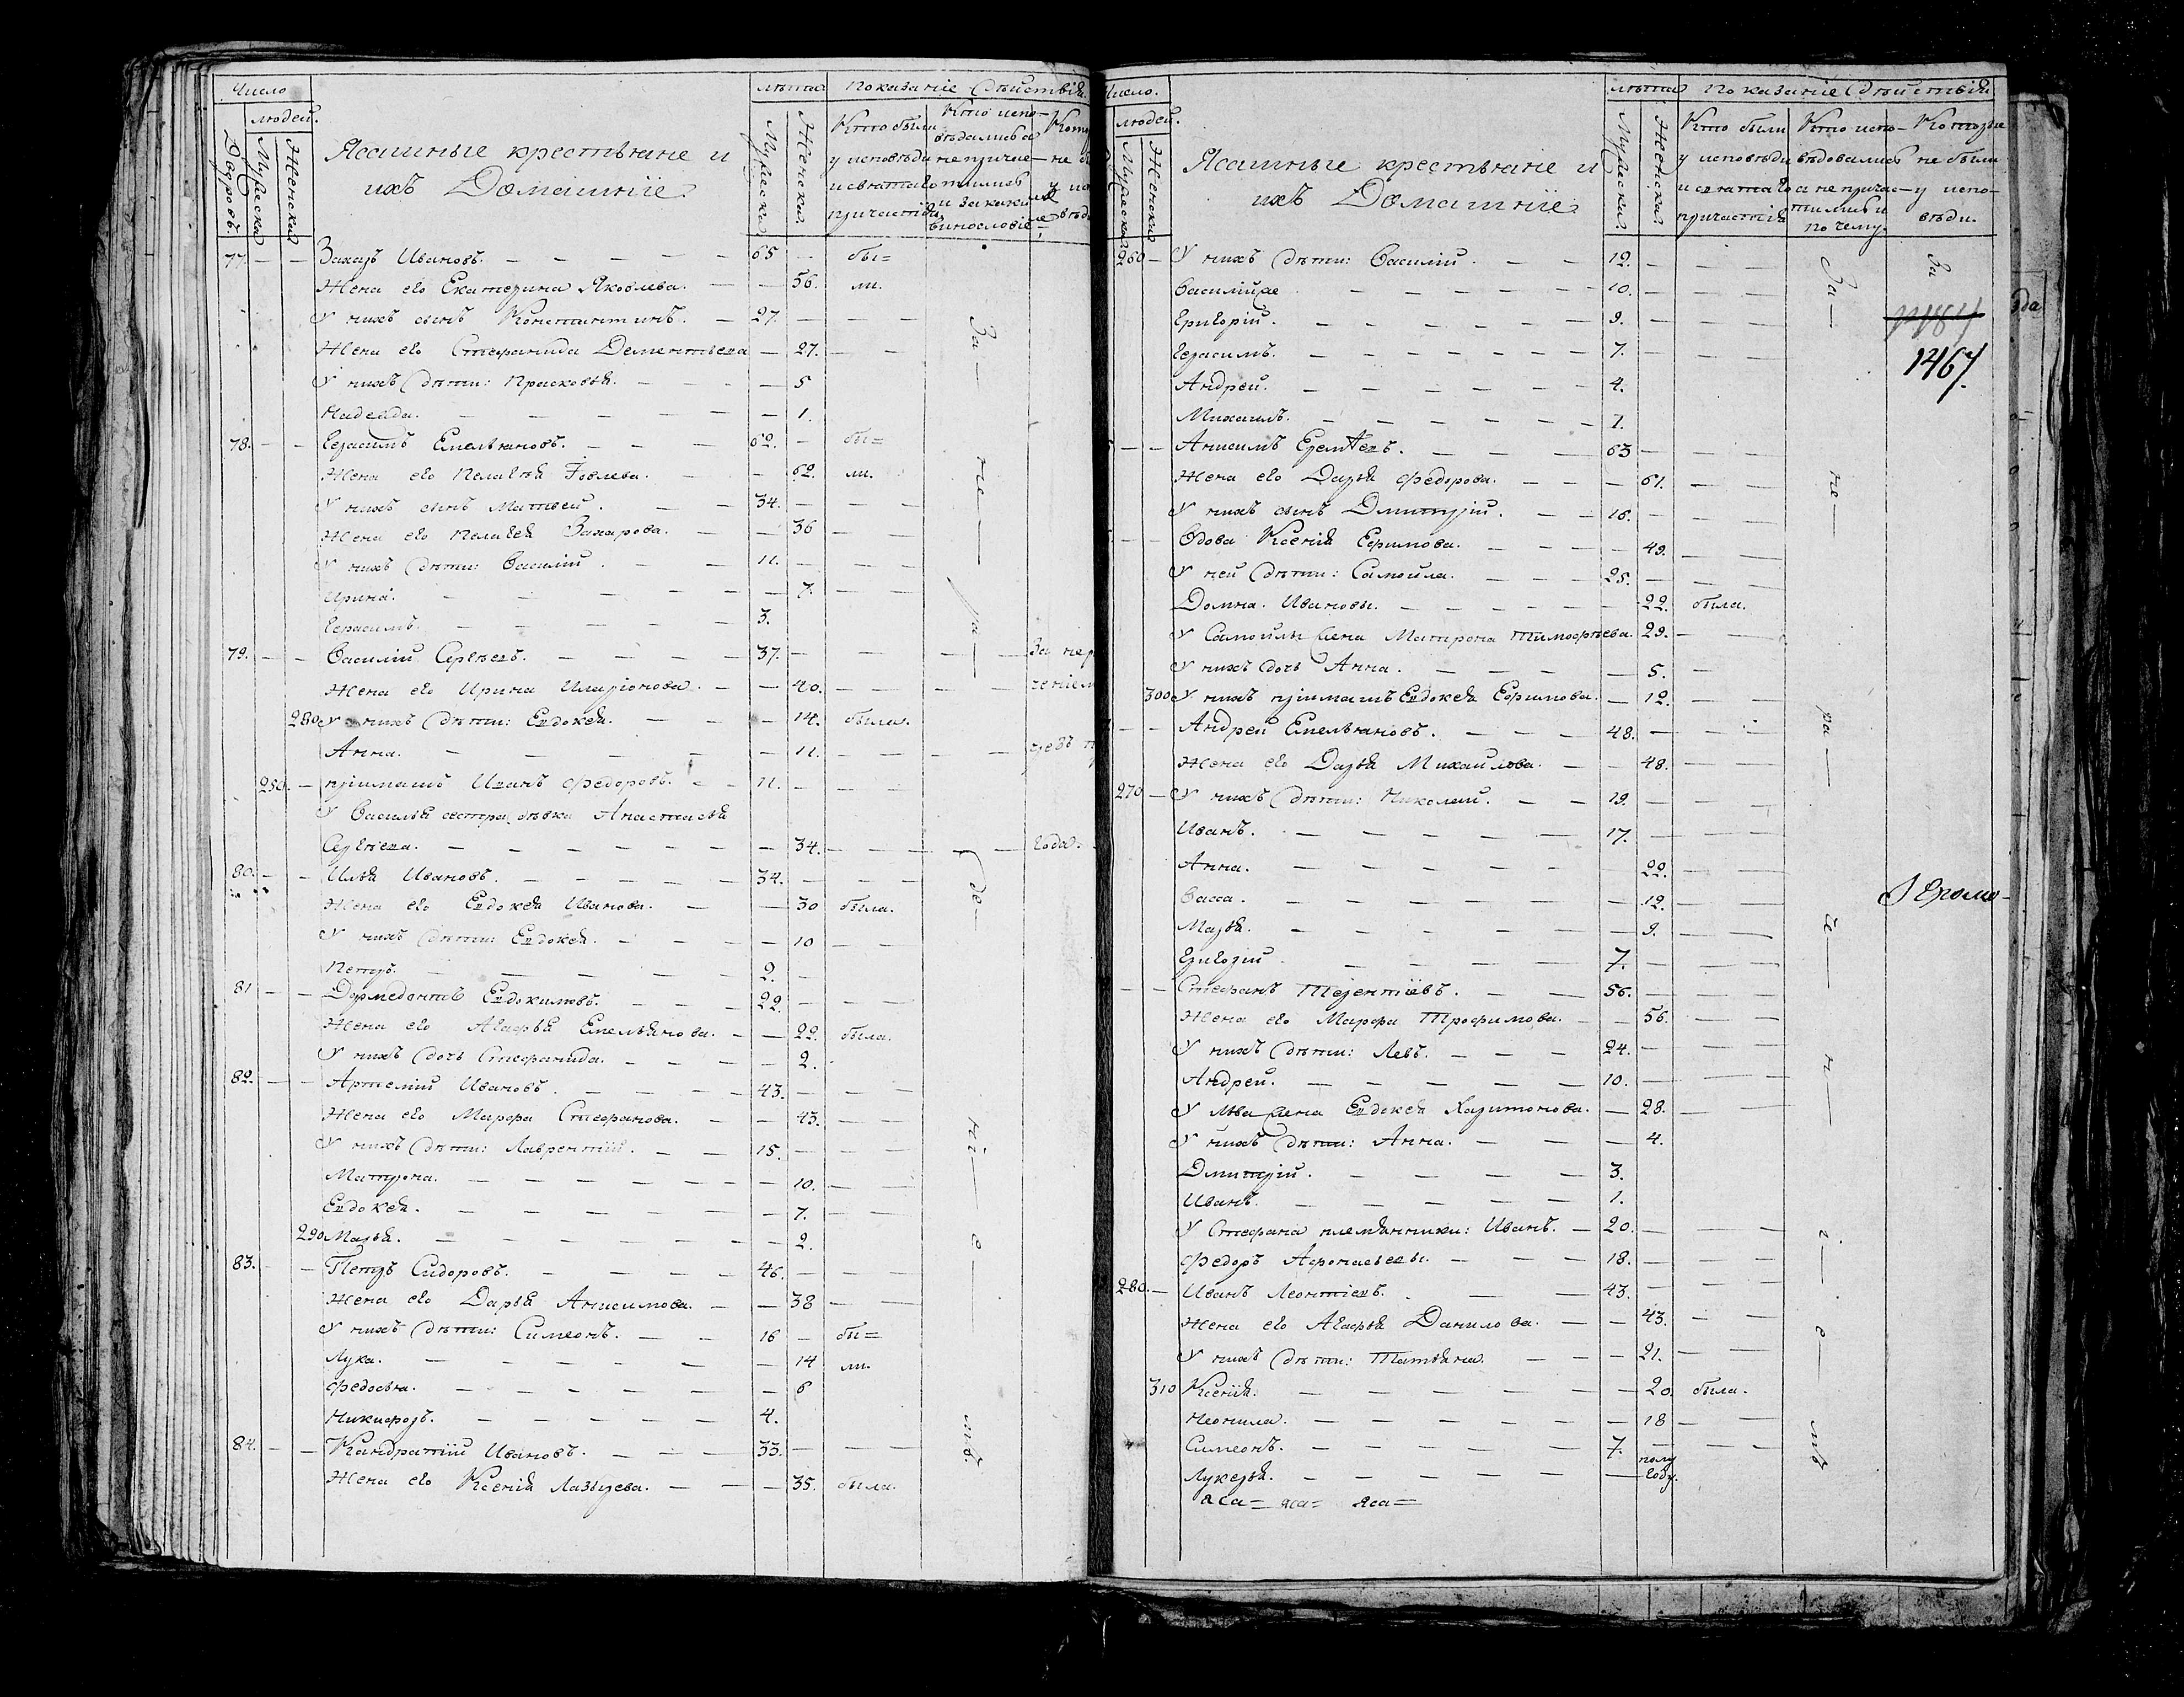 Число
людей.
Дворовъ.
Мужеска
Женска
Ясашные крестьяне и
ихъ Домашніе
лѣта
Мужеска
Женска.
Показаніе Дѣйствія.
Кто были
у исповѣди
и святаго
причастія
Кто испо-
вѣдалися
не прича-
тились
и за какимъ
винословіе
77. Захаръ Ивановъ. 65 бы=
Жена его Екатерина Яковлева. 56. ли.
У нихъ сынъ Константинъ. 27.
Жена его Стефанида Дементьева 27.
У нихъ дѣти: Прасковья. 5
Надежда. 1.
78. Герасимъ Емельяновъ. 62. бы=
Жена его Пелагѣя Іовлева. 62. ли.
У нихъ сынъ Матвей. 34.
Жена его Пелагея Захарова. 36
У нихъ дѣти: Василій. 11.
Ирина. 7.
Герасимъ. 3.
79. Василій Сергѣевъ. 37.
Жена его Ирина Иларіонова. 40.
280 У нихъ дѣти: Евдокея. 14. была.
Анна. 11.
250. пріимашъ Иванъ Федоровъ. 11.
У Василья сестра дѣвка Анастасья
Сергѣева. 34. года.
80. Илья Ивановъ. 34.
Жена его Евдокея Иванова. 30 была.
У нихъ дѣти: Евдокея. 10
Петръ. 2.
81 Дормедонтъ Евдокимовъ. 22.
Жена его Агафья Емельянова. 22. была.
У нихъ дочь Стефанида. 2.
82. Артемій Ивановъ. 43.
Жена его Марфа Стефанова. 43.
У нихъ дѣти: Лаврентій. 15.
Матрона. 10.
Евдокея. 7.
290 Марья. 2.
83. Петръ Сидоровъ. 46.
Жена его Дарья Анисимова. 38
У нихъ дѣти: Симеонъ. 16 бы=
Лука. 14 ли.
Федосья. 6
Никифоръ. 4.
84. Кандратій Ивановъ. 33.
Жена его Ксенія Лазырева. 35. была.
За
не
ра
дѣ
ні
е
мъ.
Число.
людей.
Мужеска
Женска
Ясашные крестьяне и
ихъ Домашніе
лѣта
Мужеска
Женска
Показаніе Дѣйствія
Кто были
у исповѣди
и святаго
причастія
Кто испо-
вѣдовались
а не прича-
тились и
по чему.
Которые
не были
у испо-
вѣди.
260 У нихъ дѣти: Василій. 12.
Василій же 10.
Григорій. 9.
Герасимъ. 7.
Андрей. 4.
Михаилъ. 1.
Анисимъ Еремѣевъ. 63
Жена его Дарья Федорова. 61.
У нихъ сынъ Дмитрій. 16.
Вдова Ксенія Ефимова. 49.
У ней дѣти: Самойла. 25.
Домна. Ивановы. 22. была.
У Самойлы жена Матрона Тимофѣева. 29.
У нихъ дочь Анна. 5.
300 У нихъ пріимашъ Евдокея Ефимова. 12.
Андрей Емельяновъ. 48.
Жена его Дарья Михайлова. 48.
270 У нихъ дѣти: Николай. 19.
Иванъ. 17.
Анна. 22.
Васса. 12.
Марья. 9.
Григорій 7.
Стефанъ Терентіевъ. 56.
Жена его Марфа Трофимова. 56.
У нихъ дѣти: Левъ. 24.
Андрей. 10.
У Льва жена Евдокея Харитонова. 28.
У нихъ дѣти: Анна. 4.
Дмитрій. 3.
Иванъ. 1.
У Стефана племянники: Иванъ. 20.
Федоръ Афонасьевы. 18.
280. Иванъ Леонтіевъ. 43.
Жена его Агафья Данилова. 43.
У нихъ дѣти: Татьяна. 21.
310 Ксенія. 20. была.
Неонила. 18
Симеонъ. 7.
Лукерья. полу году.
За
не
ра
де
н
і
е
мъ
За
1467.